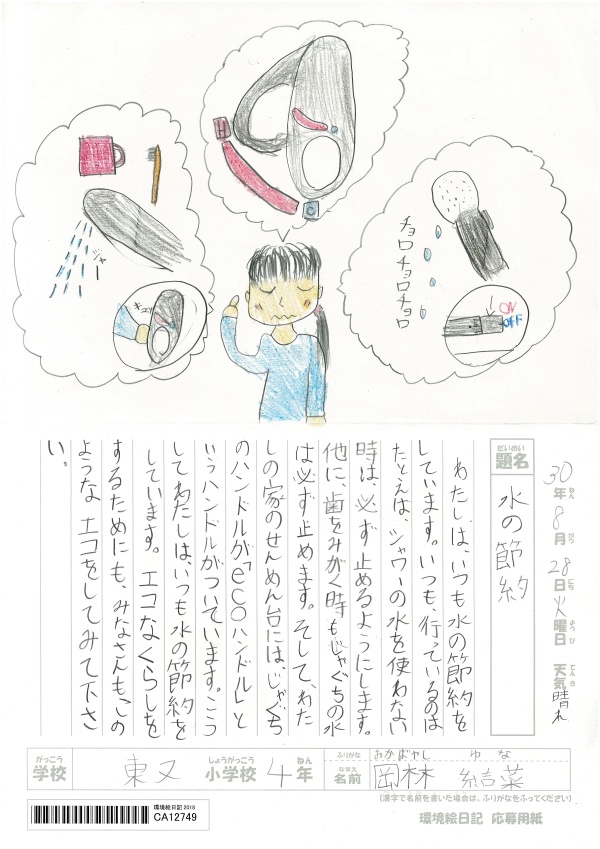 H
C
ジャー
キュッ
チョロチョロチョロ
ON
OFF
30年8月28日火曜日 天気晴れ
ねん がつ にち ようび てんき
だいめい
題名
水の節約
わたしは、いつも水の節約を
しています。いつも、行っているのは
たとえば、シャワーの水を使わない
時は、必ず止めるようにします。
他に、歯をみがく時もじゃぐちの水
は必ず止めます。そして、わた
しの家のせんめん台には、じゃぐち
のハンドルが「ecoハンドル」と
いうハンドルがついています。こう
してわたしは、いつも水の節約を
しています。エコなくらしを
するためにも、みなさんも、この
ような エコをしてみて下さ
い。
がっこう しょうがっこう ねん
学校 東又 小学校 4年
ふりがな おかばやし ゆな
なまえ
名前 岡林 結菜
(漢字で名前を書いた場合は、ふりがなをふってください)
環境絵日記 2018
CA12749
環境絵日記 応募用紙